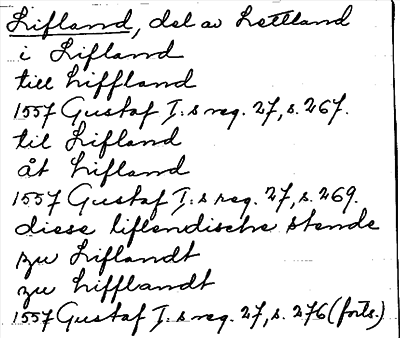 Lifland, del av Lettland
i Lifland
till Liffland
1557 Gustaf I:s reg. 27, s. 267.
til Lifland
åt Lifland
1557 Gustaf I:s reg. 27, s. 269.
diese liflendische stende
zu Liflandt
zu Lifflandt
1557 Gustaf I:s reg. 27, s. 276 (forts.)